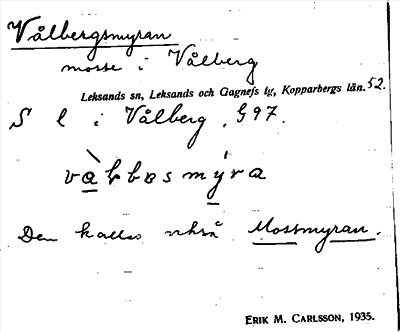 Vålbergsmyran
mosse i Vålberg
Leksands sn, Leksands och Gagnefs tg, Kopparbergs län. 52.
S l i Vålberg, G 97.
Den kallas också Mossmyran.
ERIK M. CARLSSON, 1935.